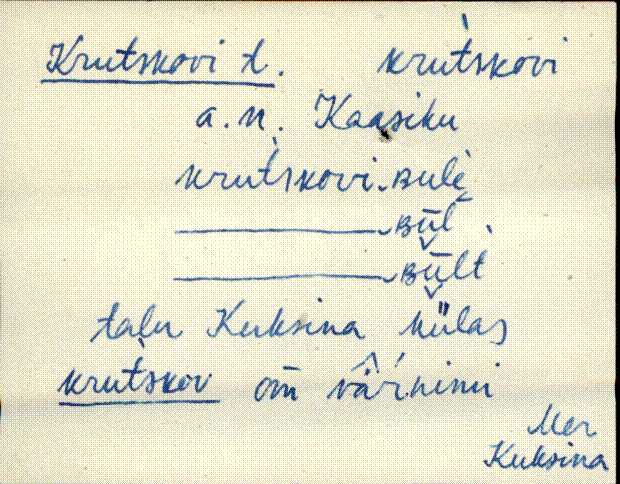 Krutskovi t. krut̀skovi
a. n. Kaasiku
krut̀skovi-ʙulè
———-ʙūl̬
———-ʙūl̬t
talu Kuksina külas
krut̀skov om̄ vär̂ńimi
Mer
Kuksina